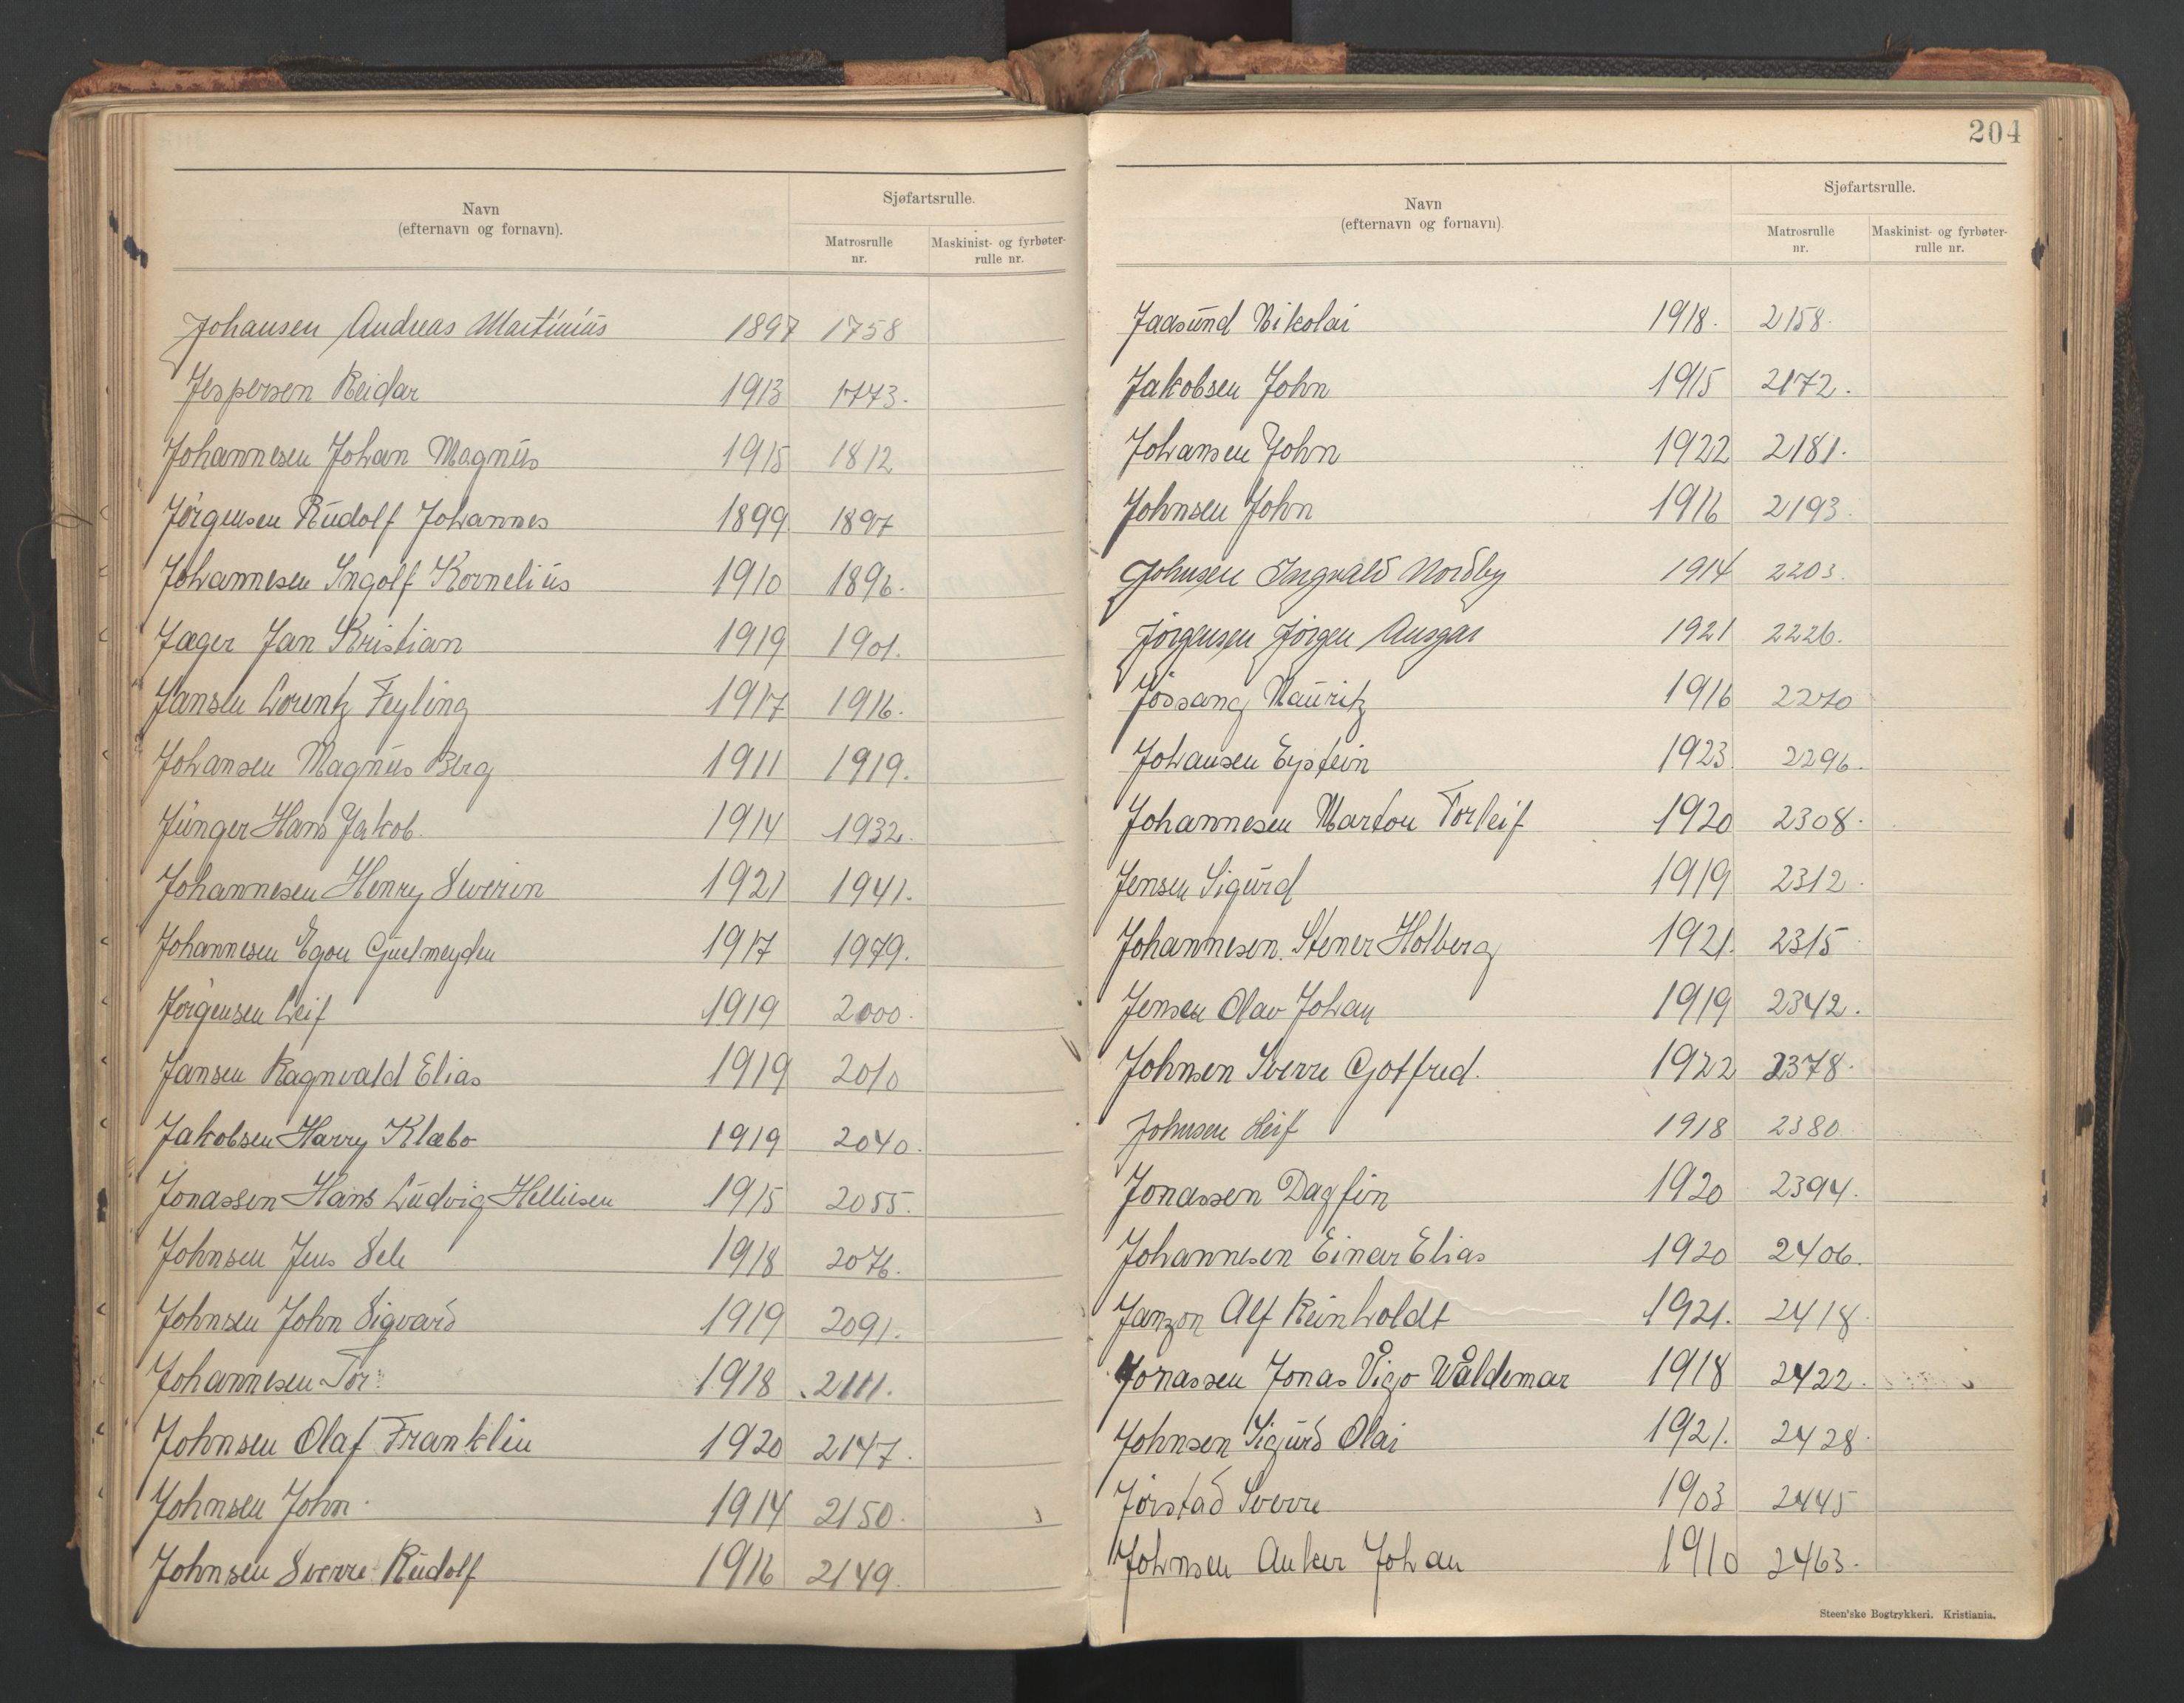 Navn
(efternavn og fornavn).
Sjøfartsrulle.
Matrosrulle nr.
Maskinist- og fyrbøter-rulle nr.
Johansen Andreas Martinius 1897 1758
Jespersen Reidar 1913 1773.
Johannesen Johan Magnus 1915 1812
Jörgensen Rudolf Johannes 1899 1897
Johannesen Ingolf Kornelius 1910 1896.
Jæger Jan Kristian 1919 1901.
Jansen Lorentz Feyling 1917 1916.
Johansen Magnus Berg 1911 1919.
Jünger Hans Jakob. 1914 1932.
Johannesen Henry Severin 1921 1941.
Johannesen Egon 1917 1979.
Jörgensen Leif 1919 2000.
Jansen Ragnvald Elias 1919 2010
Jakobsen Harry Klæbo 1919 2040.
Jonassen Hans Ludvig Helliesen 1915 2055.
Johnsen Jens Sele 1918 2076.
Johnsen John Sigvard 1919 2091.
Johannesen Tor. 1918 2111.
Johnsen Olaf Franklin 1920 2147.
Johnsen John. 1914 2150.
Johnsen Sverre Rudolf 1916 2149.
204
Navn
(efternavn og fornavn).
Sjøfartsrulle.
Matrosrulle nr.
Maskinist- og fyrbøter-rulle nr.
Jaasund Nikolai 1918. 2158.
Jakobsen John 1915 2172.
Johansen John 1922 2181.
Johnsen John 1916 2193.
Johnsen Ingvald Nordby 1914 2203.
Jørgensen Jörgen Ansgar 1921 2226.
Jössang Mauritz 1916 2270
Johansen Eystein 1923 2296.
Johannesen Marton Torleif 1920 2308.
Jensen Sigurd 1919 2312.
Johannesen. Stener Holberg 1921. 2315
Jensen Olav Johan 1919 2342.
Johnsen Sverre Gotfred. 1922 2378.
Johnsen Leif 1918 2380
Jonassen Dagfin 1920 2394.
Johannesen Einar Elias 1920 2406.
Janzon Alf Reinholdt 1921. 2418.
Jonassen Jonas Vigo Waldemar 1918 2422.
Johnsen Sigurd Olai 1921. 2428.
Jørstad Sverre 1903 2445
Johnsen Anker Johan 1910 2463.
Steen'ske Bogtrykkeri. Kristiania.